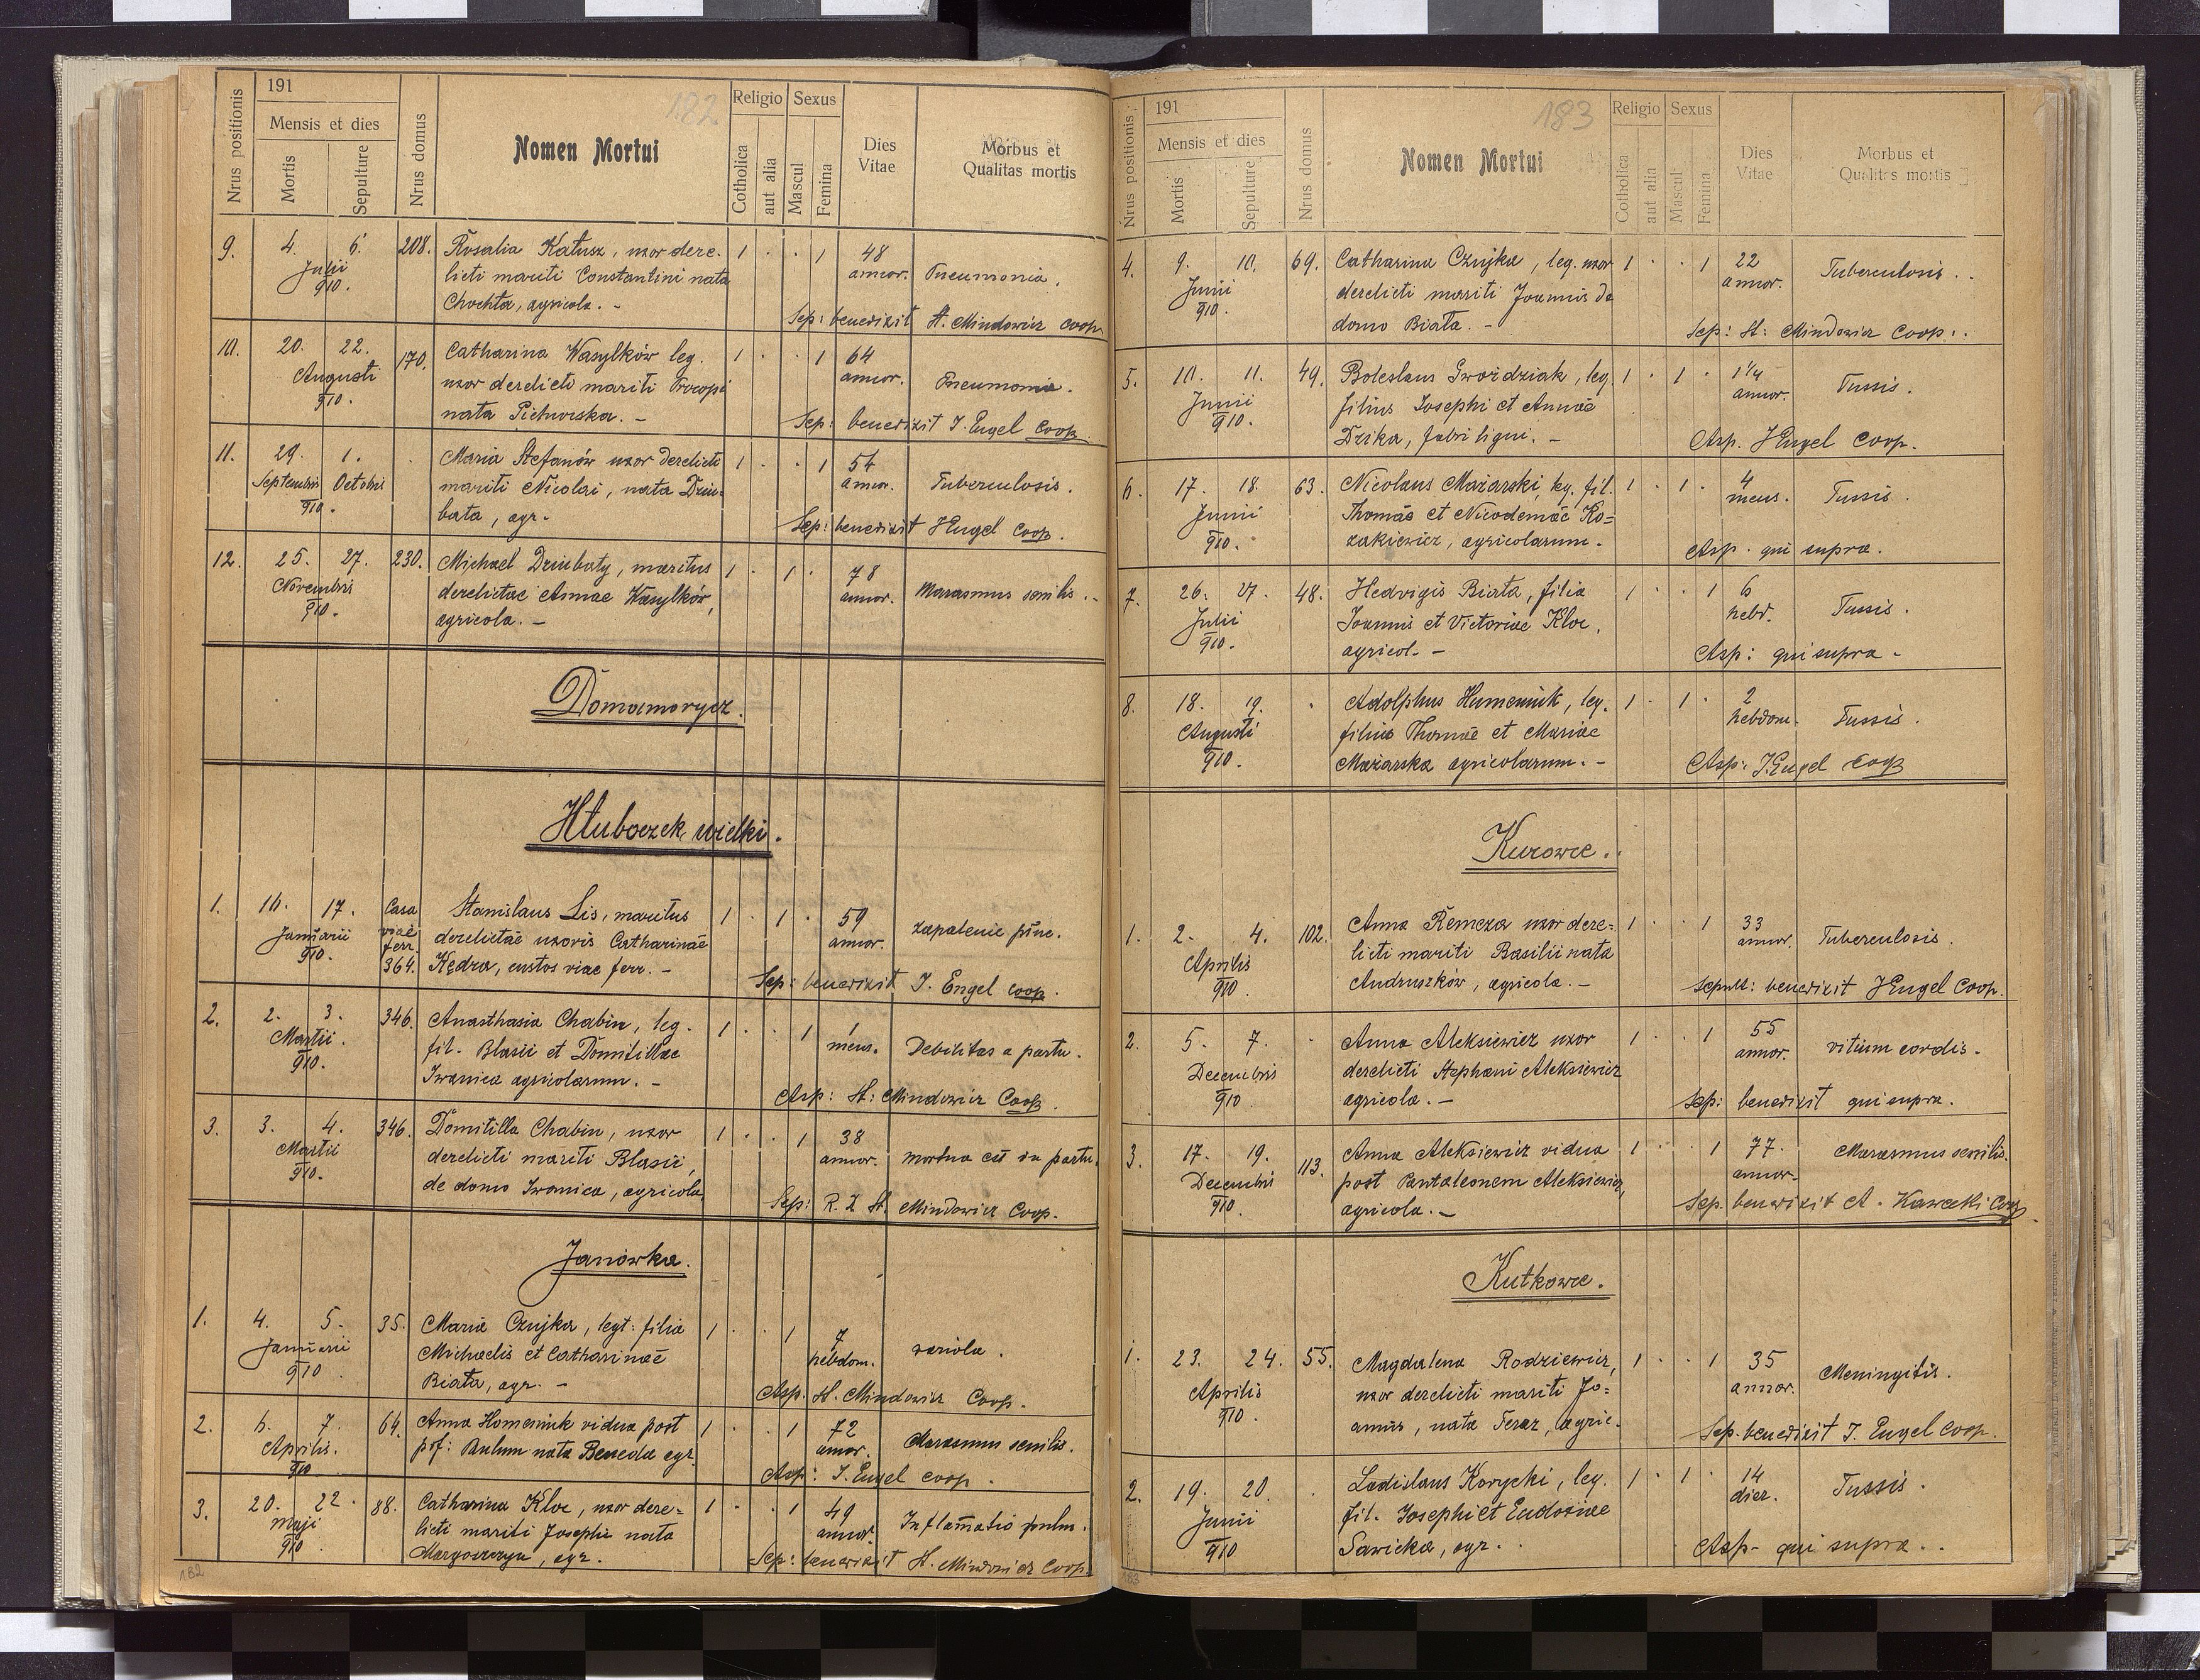 182
Nrus positionis
191
Mensis et dies
Mortis
Sepulture
Nrus domus
Nomen Mortui
Religio
Catholica
aut alia
Sexus
Mascul
Femina
Dies
Vitae
Morbus et
Qualitas mortis
9. 4. 6. 208. Rosalia Katusz, uxor dere- 1 · · 1 48
Julii licti mariti Constantini nata annor. Pneumonia.
910. Chochta, agricola. -
Sep: benedixit St. Mindowicz coop.
10. 20. 22. 170. Catharina Wasylków leg. 1 · · 1 64
Augusti uxor derelicti mariti Procopi annor. Pneumonia.
910. nata Pichurska. -
Sep: benedixit J. Engel coop.
11. 29. 1. · Maria Stefanów uxor derelicti 1 · · 1 54
Septembris Octobri mariti Nicolai, nata Dziu- annor. Tuberculosis.
910. bata, agr.
Sep: benedixit J Engel coop.
12. 25. 27. 230. Michael Dziubaty, maritus 1 · 1 · 78
Novembris derelictae Annae Wasylków, annor. Marasmus senilis.
910. agricola. -
Domamorycz.
Hłuboczek wielki.
1. 16. 17. Casa Stanislaus Lis, maritus 1 · 1 · 59
Januarii viae derelictae uxoris Catharinae annor. zapalenie płuc.
910. ferr. 364. Kędra, custos viae ferr. -
Sep: benedixit J. Engel coop.
2. 2. 3. 346. Anasthasia Chabin, leg. 1 · · 1 1
Martii. fil. Blasii et Domitillae mens. Debilitas a partu.
910. Iwanica agricolarum. -
Asp: St: Mindowicz Coop.
3. 3. 4. 346. Domitilla Chabin, uxor 1 · · 1 38
Martii derelicti mariti Blasii, annor. mortua est in partu.
910. de domo Iwanica, agricola
Sep: R. X St. Mindowicz Coop.
Janówka.
1. 4. 5. 35. Maria Czujka, legt: filia 1 · · 1 7
Januarii Michaelis et Catharinae hebdom. variola.
910 Biata, agr. -
Asp. St. Mindowicz Coop.
2. 6. 7. 64. Anna Homeniuk vidua post 1 · · 1 72
Aprilis. pof: Paulum nata Beneda agr. annor. Marasmus senilis.
910
Asp: J. Engel coop.
3. 20. 22. 88. Catharina Kloc, uxor dere- 1 · · 1 49
Maji licti mariti Josephi nata annor. Inflamatio pulm.
910 agr.
Sep: benedixit St. Mindowicz Coop.
182
183
Nrus positionis
191
Mensis et dies
Mortis
Sepulture
Nrus domus
Nomen Mortui
Religio
Catholica
aut alia
Sexus
Mascul
Femina
Dies
Vitae
Morbus et
Qualitas mortis
4. 9. 10. 69. Catharina Czujka, leg. uxor 1 · · 1 22
Junii derelicti mariti Joannis de annor. Tuberculosis.
910. domo Biata. -
Sep: St: Mindowicz Coop.
5. 10. 11. 49. Boleslaus Gwoździak, leg. 1 · 1 · 1 1/4
Junii filius Josephi et Annae annor. Tussis.
910. Dzika, fabri ligni. -
Asp. J Engel coop.
6. 17. 18. 63. Nicolaus Mażarski, leg. fil. 1 · 1 · 4
Junii Thomae et Nicodemae Ko= mens. Tussis.
910. zakiewicz, agricolarum.
Asp. qui supra.
7. 26. 27. 48. Hedvigis Biata, filia 1 · · 1 6
Julii Joannis et Victoriae Kloc, hebd. Tussis.
910. agricol. -
Asp: qui supra.
8. 18. 19. · Adolphus Humeniuk, leg. 1 · 1 · 2
Augusti filius Thomae et Mariae hebdom. Tussis.
910. Mażarska agricolarum. -
Asp: J. Engel coop
Kurowce.
1. 2. 4. 102. Anna Remeza uxor dere= 1 · · 1 33
Aprilis licti mariti Basilii nata annor. Tuberculosis.
910 Andruszków, agricola. -
Sepult: benedixit J Engel Coop.
2. 5. 7. · Anna Aleksiewicz uxor 1 · · 1 55
Decembris derelicti Stephani Aleksiewicz annor. vitium cordis.
910 agricola. -
Sep: benedixit qui supra.
3. 17. 19. 113. Anna Aleksiewicz vidua 1 · · 1 77.
Decembris post Pantaleonem Aleksiewicz, annor. Marasmus senilis.
910. agricola. -
Sep. benedixit A. Kawecki Coop
Kutkowce.
1. 23. 24. 55. Magdalena Rodziewicz, 1 · · 1 35
Aprilis uxor derelicti mariti Jo= annor. Meningitis.
910. annis, nata Teraz, agric.
Sep. benedixit J. Engel coop.
2. 19. 20. · Ladislaus Korycki, leg. 1 · 1 · 14
Junii fil. Josephi et Eudoxiae dier. Tussis.
910 Sawicka, agr.
Asp. qui supra.
183